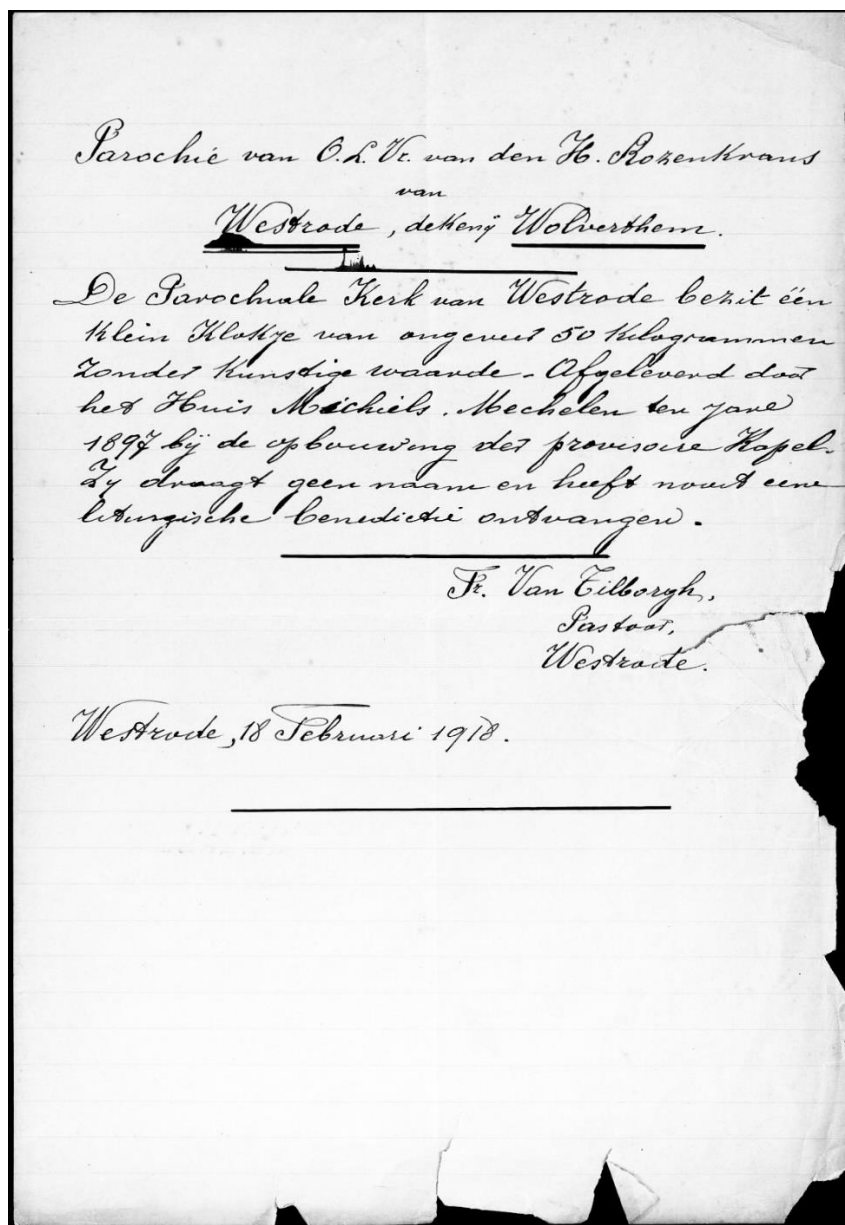 Parochie van O. L. Vr. van den H. Rozenkrans
van
Westrode, dekenij Wolverthem.
De Parochiale Kerk van Westrode bezit één
klein Klokje van ongeveer 50 Kilogrammen
zonder kunstige waarde - Afgeleverd door
het Huis Michiels. Mechelen ten jare
1897 bij de opbouwing der provisoire Kapel.
Zij draagt geen naam en heeft nooit eene
liturgische benedictie ontvangen.
Fr. Van Tilborgh,
Pastoor,
Westrode.
Westrode, 18 Februari 1918.